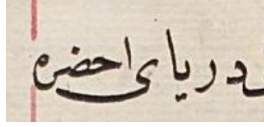 دریای احضره